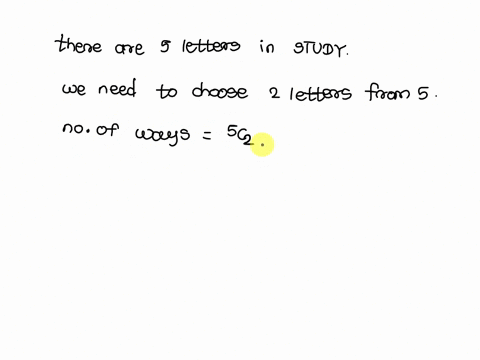 there are 5 letters in STUDY.
we need to choose 2 letters from 5.
no. of ways = 5C2.